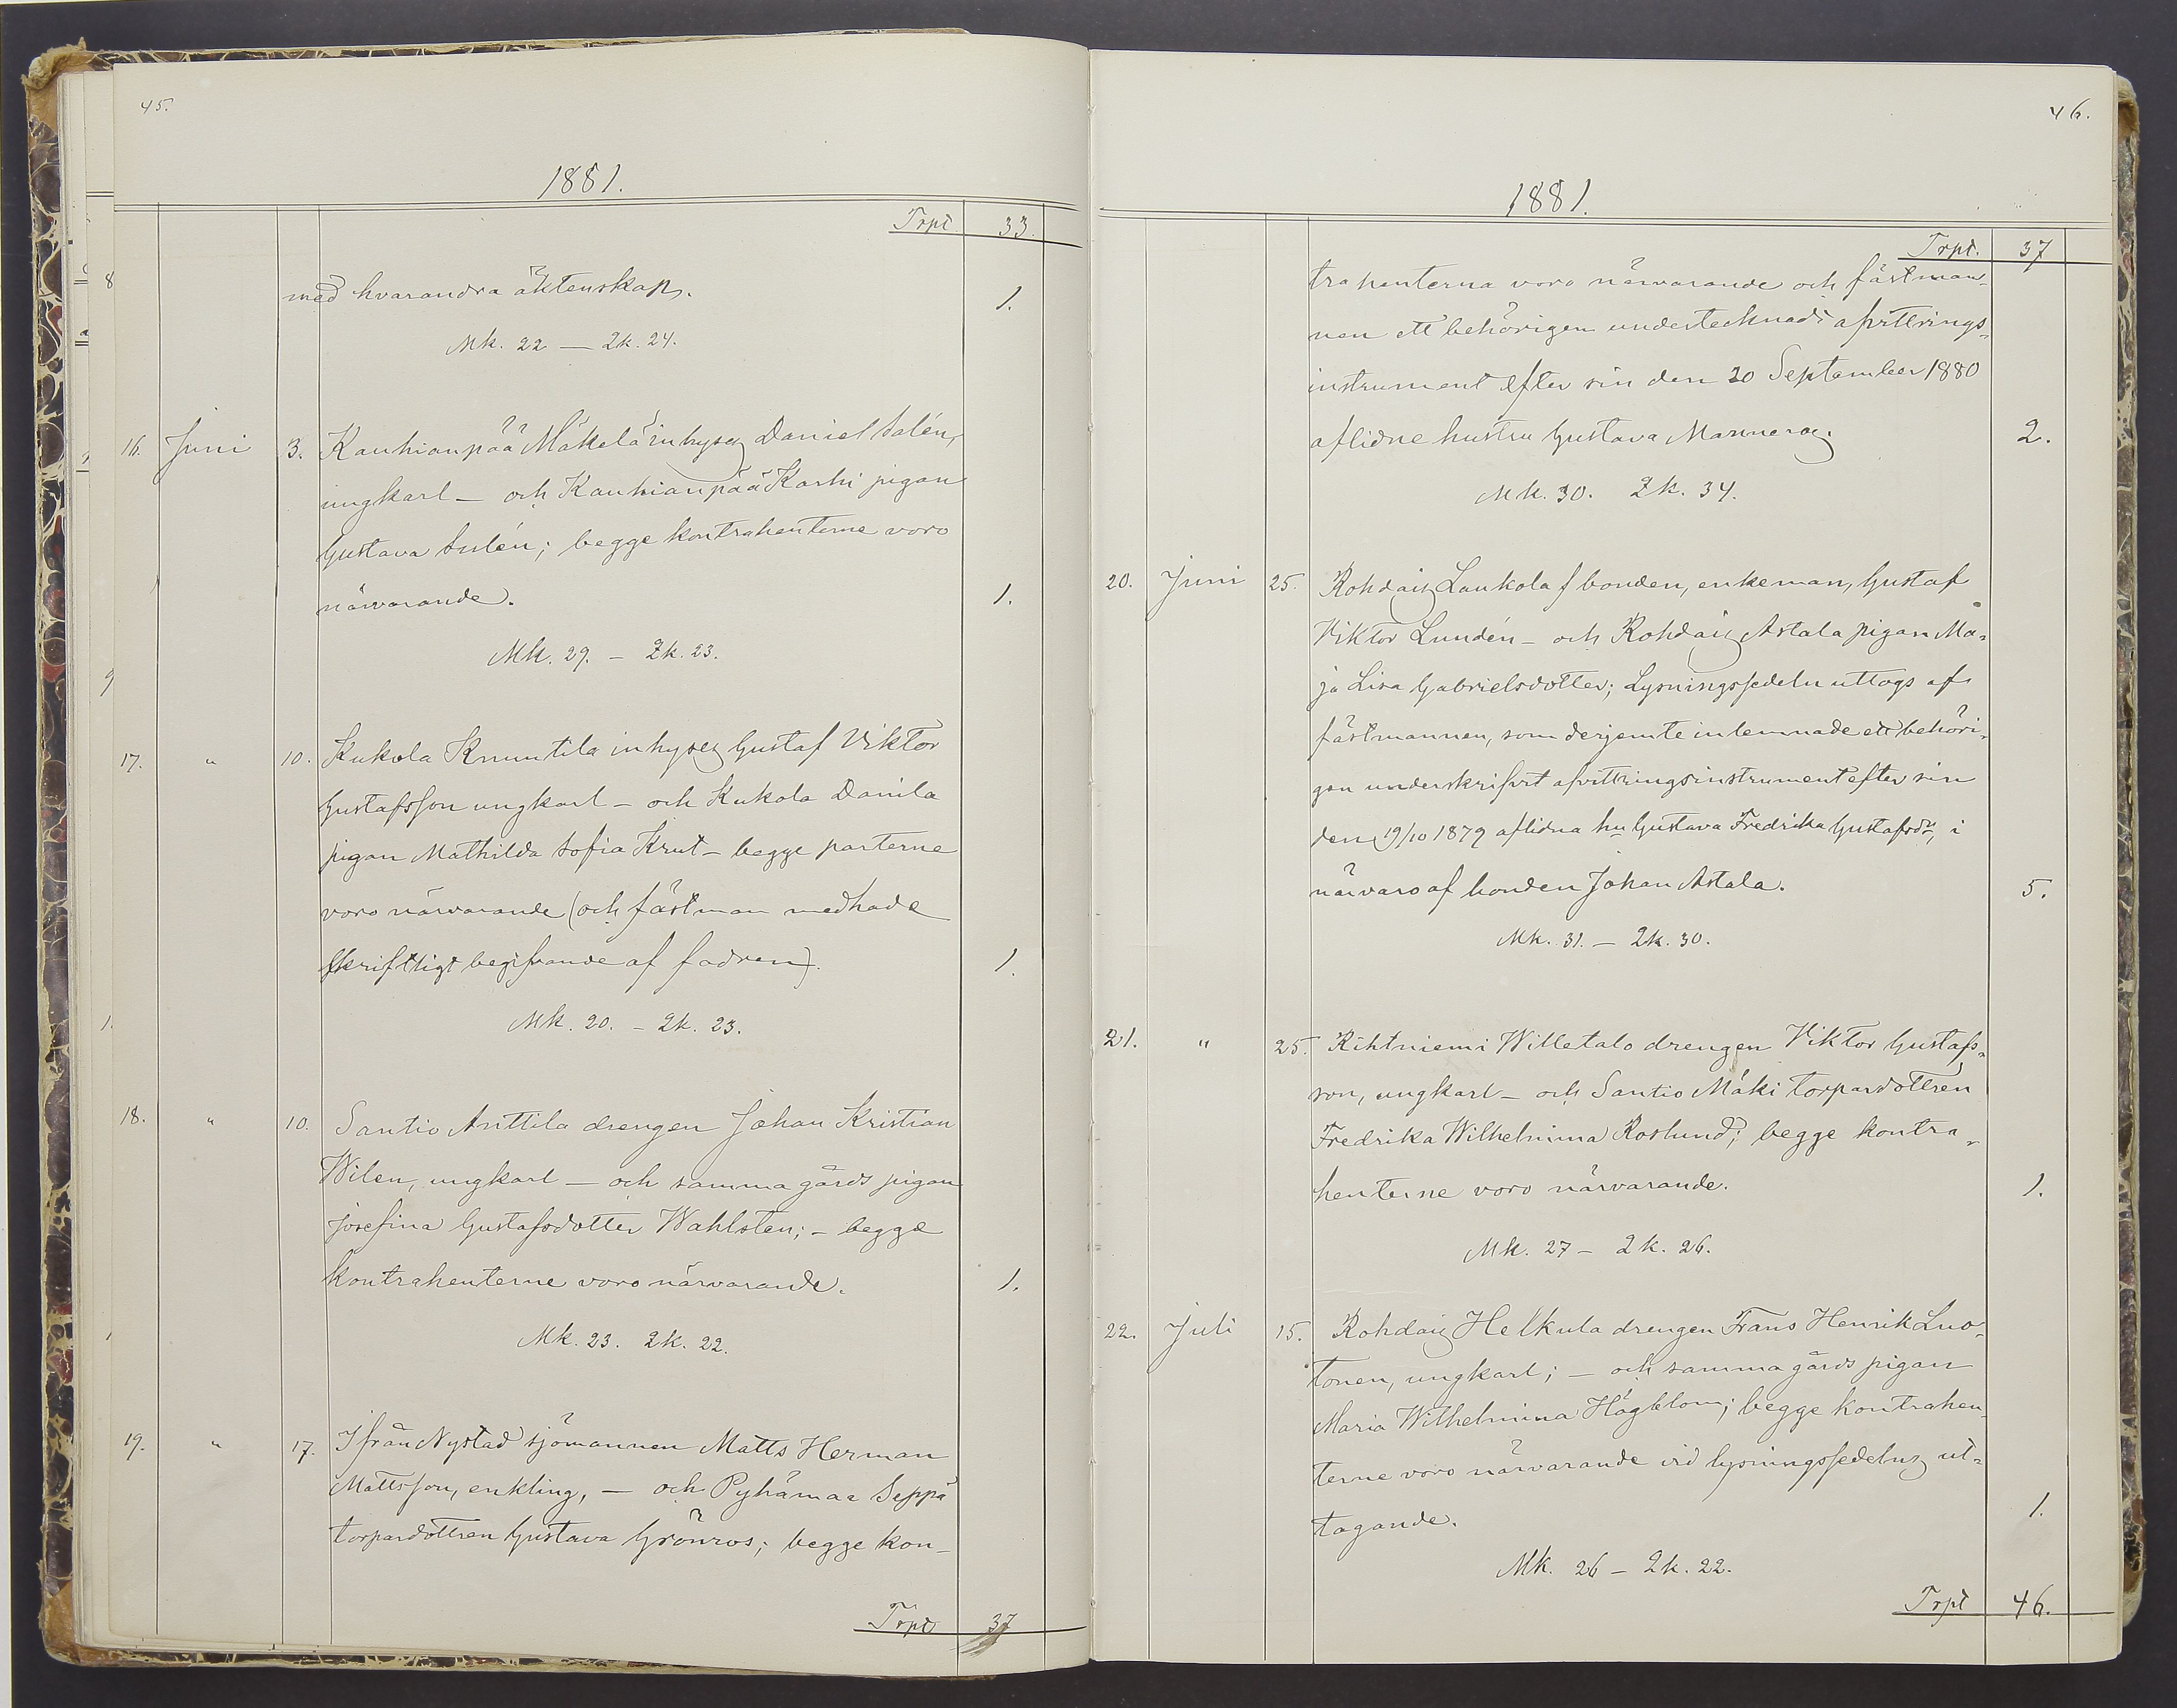 45.
1881.
Trpt 33.
med hvarandra äktenskap. 1.
Mk. 22 — Qk. 24.
16. Juni 3. Kauhianpää Mäkelä inhyses Daniel Salén,
ungkarl — och Kauhianpää Karhi pigan
Gustava Sulén; begge kontrahenterne voro
närvarande. 1.
Mk. 29. — Qk. 23.
17. " 10. Kukola Knuutila inhyses Gustaf Viktor
Gustafsson ungkarl — och Kukola Danila
pigan Mathilda Sofia Krut — begge parterne
voro närvarande (och fästman medhade
skriftligt begifvande af fadren). 1.
Mk. 20. — Qk. 23.
18. " 10. Santio Anttila drengen Johan Kristian
Wilen, ungkarl — och samma gårds pigan
Josefina Gustafsdotter Wahlsten; — begge
kontrahenterne voro närvarande. 1.
Mk. 23. Qk. 22.
19. " 17. Ifrån Nystad sjömannen Matts Herman
Mattsson, enkling, — och Pyhämaa Seppä
torpardottren Gustava Grönros; begge kon-
Trpt 37
46.
1881.
Trpt. 37
trahenterna voro närvarande och fästman-
nen ett behörigen undertecknadt afvittrings-
instrument efter sin den 20 September 1880
aflidne hustru Gustava 2.
Mk. 30. Qk. 34.
20. Juni 25. Rohdais Laukola f bonden, enkeman, Gustaf
Viktor Lundén — och Rohdais Astala pigan Ma-
ja Lisa Gabrielsdotter; Lysningssedeln uttogs af
fästmannen, som derjemte inlemnade ett behöri-
gen underskrifvet afvittringsinstrument efter sin
den 19/10 1879 aflidna hu Gustava Fredrika Gustafsdr, i
närvaro af bonden Johan Astala. 5.
Mk. 31. — Qk. 30.
21. " 25. Rihtniemi Willetalo drengen Viktor Gustafs-
son, ungkarl — och Santio Mäki torpardottren
Fredrika Wilhelmina Roslund; begge kontra-
henterne voro närvarande. 1.
Mk. 27 — Qk. 26.
22. Juli 15. Rohdais Helkula drengen Frans Henrik Luo-
tonen, ungkarl; — och samma gårds pigan
Maria Wilhelmina Högblom; begge kontrahen-
terne voro närvarande vid lysningssedelns ut-
tagande. 1.
Mk. 26 — Qk. 22.
Trpt 46.